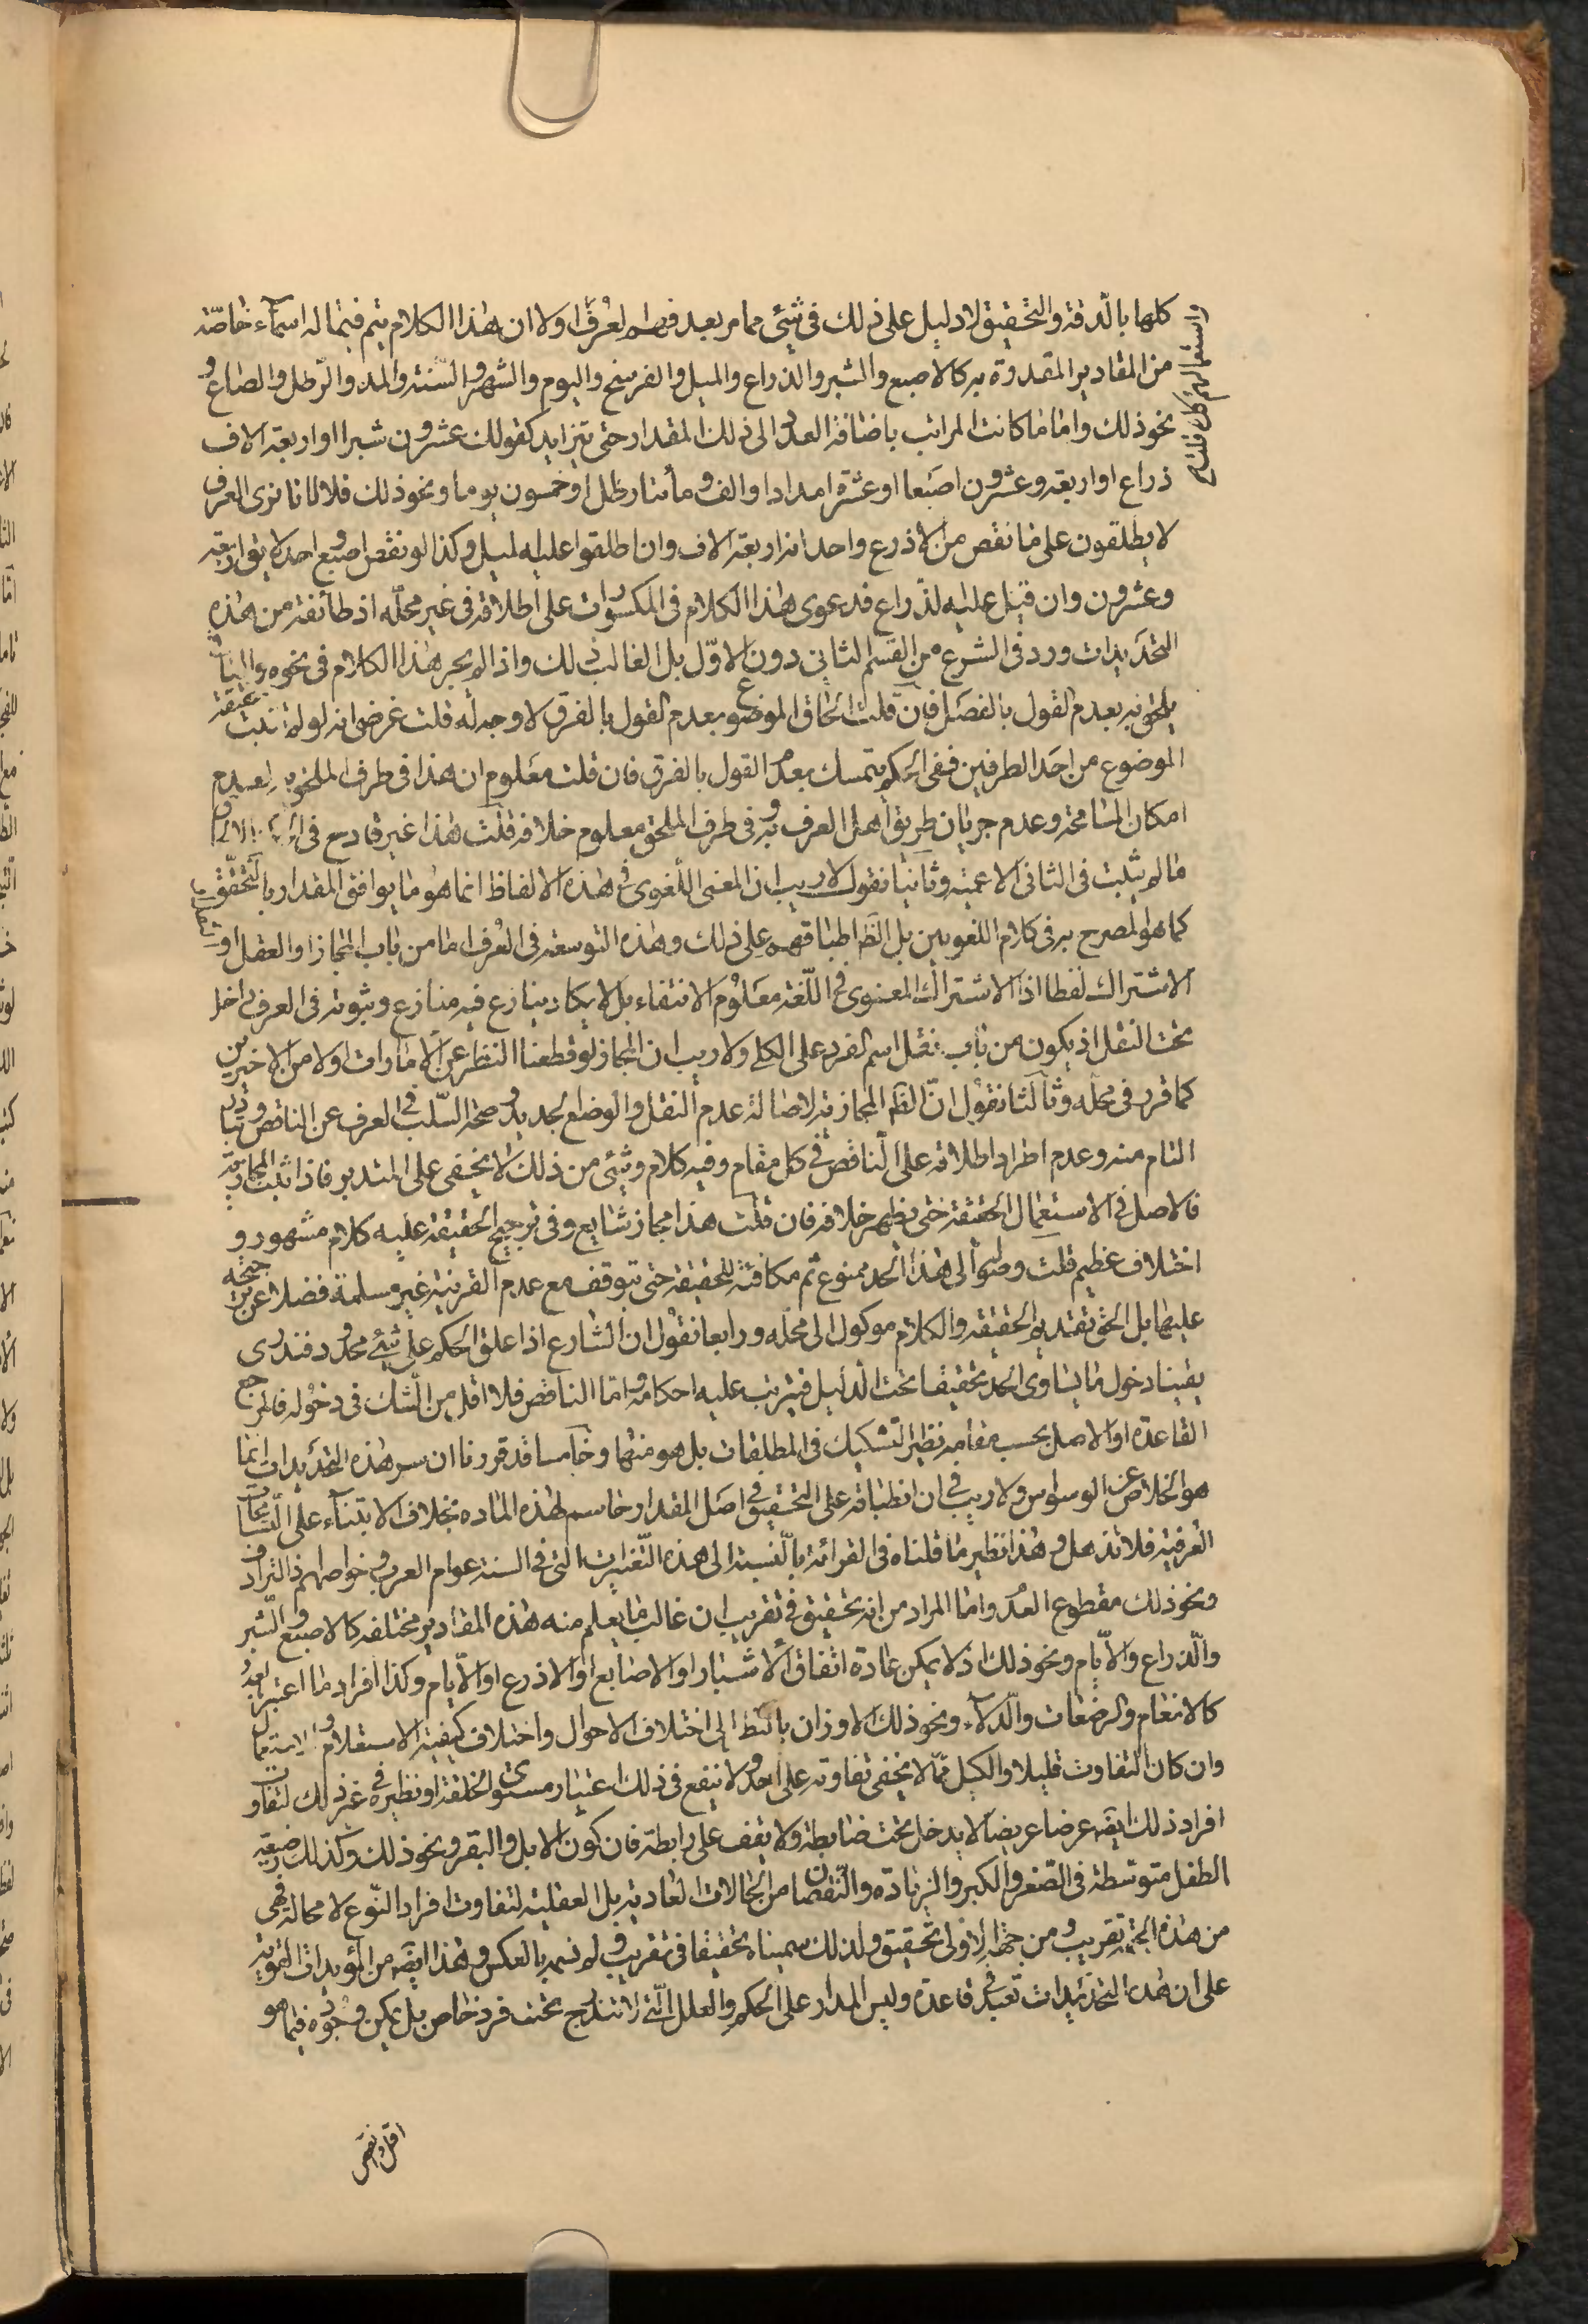 كلها بالدقة والتحقيق لا دليل على ذلك في شئ مما مر بعد فهم العرف اولا ان هذا الكلام يتم فيما له اسماء خاصة
واستعمالهم كك قلت
من المقادير المقدرة به كالاصبع والشبر والذراع والميل والفرسخ واليوم والشهر والسنة والمد والرطل والصاع و
نحو ذلك واما ما كانت المراتب باضافة العدد الى ذلك المقدار حتى يتزايد كقولك عشرون شبرا او اربعة الاف
ذراع او اربعة وعشرون اصبعا او عشرة امداد او الف ومأتا رطل او خمسون يوما ونحو ذلك فلا لانا نرى العرف
لا يطلقون على ما نقص من الاذرع واحد انه اربعة الاف وان اطلقوا عليه الميل وكذا لو نقص اصبع واحد لا يق اربعة
وعشرون وان قيل عليه الذراع فدعوى هذا الكلام في المكسورات على اطلاقه في غير محله اذ طائفة من هذه
التحديدات ورد في الشرع من القسم الثاني دون الاول بل الغالب ذلك واذا لم يجر هذا الكلام في نحوه والباقي
يلحق به بعدم القول بالفصل فان قلت الحاق الموضوع بعدم القول بالفرق لا وجه له قلت غرضي انه لو لم تثبت حقيقة
الموضوع من احد الطرفين ففي الحكم يتمسك بعدم القول بالفرق فان قلت معلوم ان هذا في طرف الملحق به لعدم
امكان المسامحة وعدم جريان طريق اهل العرف به وفي طرف الملحق معلوم خلافه قلت هذا غير قادح في
ما لم يثبت في الثاني الاعمية وثانيا نقول لا ريب ان المعنى اللغوي في هذه الالفاظ انما هو ما يوافق المقدار بالتحقيق
كما هو المصرح به في كلام اللغويين بل الظ اطباقهم على ذلك وهذه التوسعة في العرف اما من باب المجاز او العقل او
الاشتراك لفظا اذ الاشتراك المعنوي في اللغة معلوم الانتفاء بل لا يكاد ينازع فيه منازع وثبوته في العرف داخل
تحت النقل اذ يكون من باب نقل اسم الفرد على الكلي ولا ريب ان المجاز لو قطعنا النظر عن الامارات اولا من الاخيرين
كما قرر في محله وثالثا نقول ان الظ المجازية لاصالة عدم النقل والوضع الجديد وصحة السلب في العرف عن الناقص وتبادر
التام منه وعدم اطراد اطلاقه على الناقص في كل مقام وفيه كلام وشئ من ذلك لا يخفى على المتدبر فاذا ثبت المجازية
فالاصل في الاستعمال الحقيقة حتى يظهر خلافه فان قلت هذا مجاز شايع وفي ترجيح الحقيقة عليه كلام مشهور و
اختلاف عظيم قلت وصوله الى هذا الحد ممنوع ثم مكافئة للحقيقة حتى يتوقف مع عدم القرينة غير مسلمة فضلا عن ترجيحه
عليها بل الحق تقديم الحقيقة والكلام موكول الى محله ورابعا نقول ان الشارع اذا علق الحكم على شئ محدود فندرى
يقينا دخول ما يساوى الحد تحقيقا تحت الدليل فيترتب عليه احكامه واما الناقص فلا اقل من الشك في دخوله فالمرجع
القاعدة او الاصل بحسب مقامه نظير التشكيك في المطلقات بل هو منها وخامسا قد قررنا ان سر هذه التحديدات انما
هو الخلاص عن الوسواس ولا ريب في ان انطباقه على التحقيق في اصل المقدار حاسم لهذه الماده بخلاف الابتناء على التسامحات
العرفية فلا تذهل وهذا نظير ما قلناه في القرائة بالنسبة الى هذه التغييرات التي في السنة عوام العرف وخواصهم ذ الترادف
ونحو ذلك مقطوع العدد واما المراد من انه تحقيق في تقريب ان غالب ما يعلم منه هذه المقادير مختلفه كالاصبع والشبر
والذراع والايام ونحو ذلك اذ لا يمكن عادة اتفاق الاشبار او الاصابع او الاذرع او الايام وكذا افراد ما اعتبر بعدد
كالانعام والرضعات والدلاء ونحو ذلك الاوزان بالنظ الى اختلاف الاحوال واختلاف كيفية الاستعلام والاستعمال
وان كان التفاوت قليلا والكيل مما لا يخفى تفاوته على احد ولا ينفع في ذلك اعتبار مستوى الخلقة او نظيره في غير ذلك لتفاوت
افراد ذلك ايضه عرضا عريضا لا يدخل تحت ضابطة ولا يقف على رابطة فان كون الابل والبقر ونحو ذلك وكذلك رضعة
الطفل متوسطة في الصغر والكبر والزيادة والنقصان من الحالات العادية بل العقلية لتفاوت افراد النوع لا محالة فهي
من هذه الجهة تقريب ومن جهة الاولى تحقيق ولذلك سميناه تحقيقا في تقريب ولم نسمه بالعكس وهذا ايضه من المؤيدات القوية
على ان هذه التحديدات تعبد في قاعدة وليس المدار على الحكم والعلل التي لا تندرج تحت فرد خاص بل يمكن وجوده فيما هو
اقل وانقص